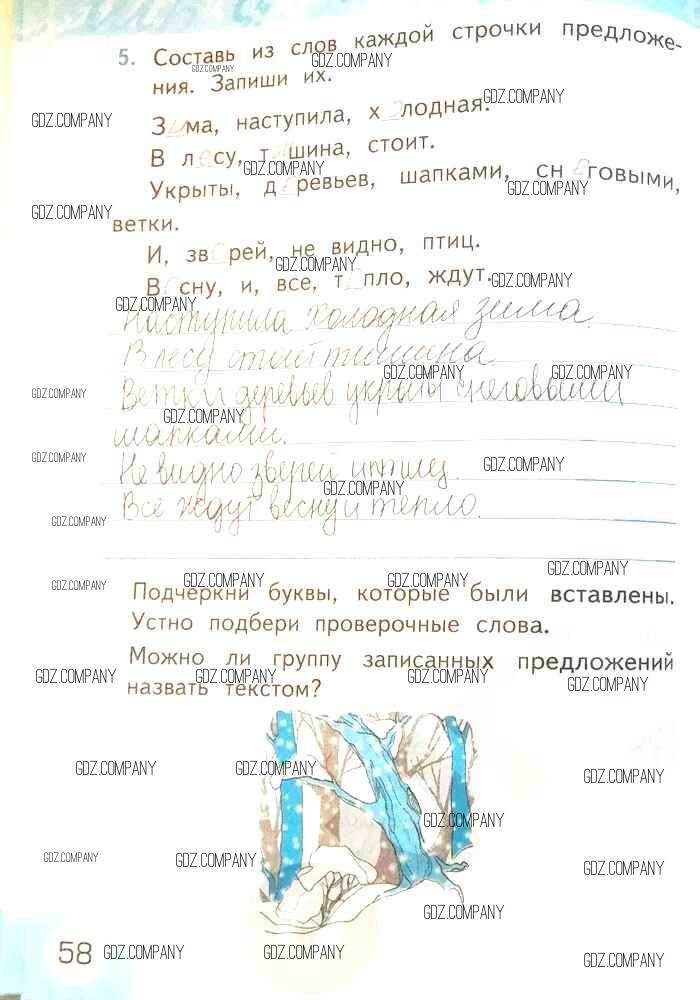 5. Составь из слов каждой строчки предложе-
ния. Запиши их.
Зима, наступила, холодная.
В лесу, тишина, стоит.
Укрыты, деревьев, шапками, снеговыми,
ветки.
И, зверей, не видно, птиц.
Весну, и, все, тепло, ждут.
Наступила холодная зима.
В лесу стоит тишина.
Ветки деревьев укрыты снеговыми
шапками.
Не видно зверей и птиц.
Все ждут весну и тепло.
Подчеркни буквы, которые были вставлены.
Устно подбери проверочные слова.
Можно ли группу записанных предложений
назвать текстом?
58
GDZ.COMPANY